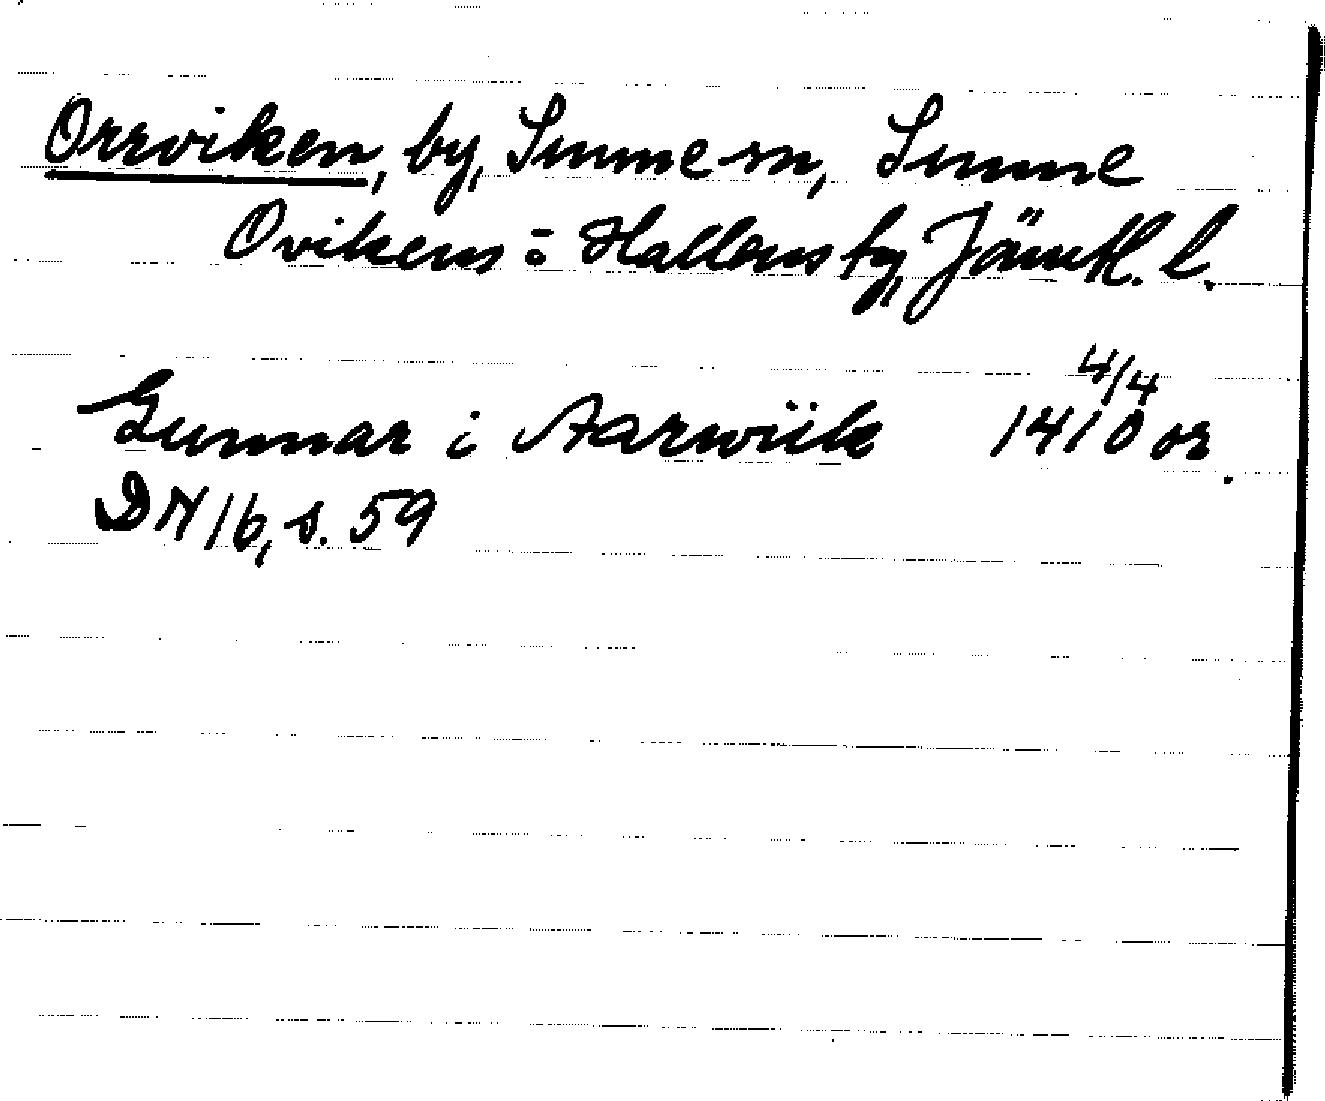 Orrviken, by, Sunne sn, Sunne
Ovikens o Hallens tg, Jämtl. l.
Gunnar i Aarwiik 1410 4/4 or.
DN 16, s. 59